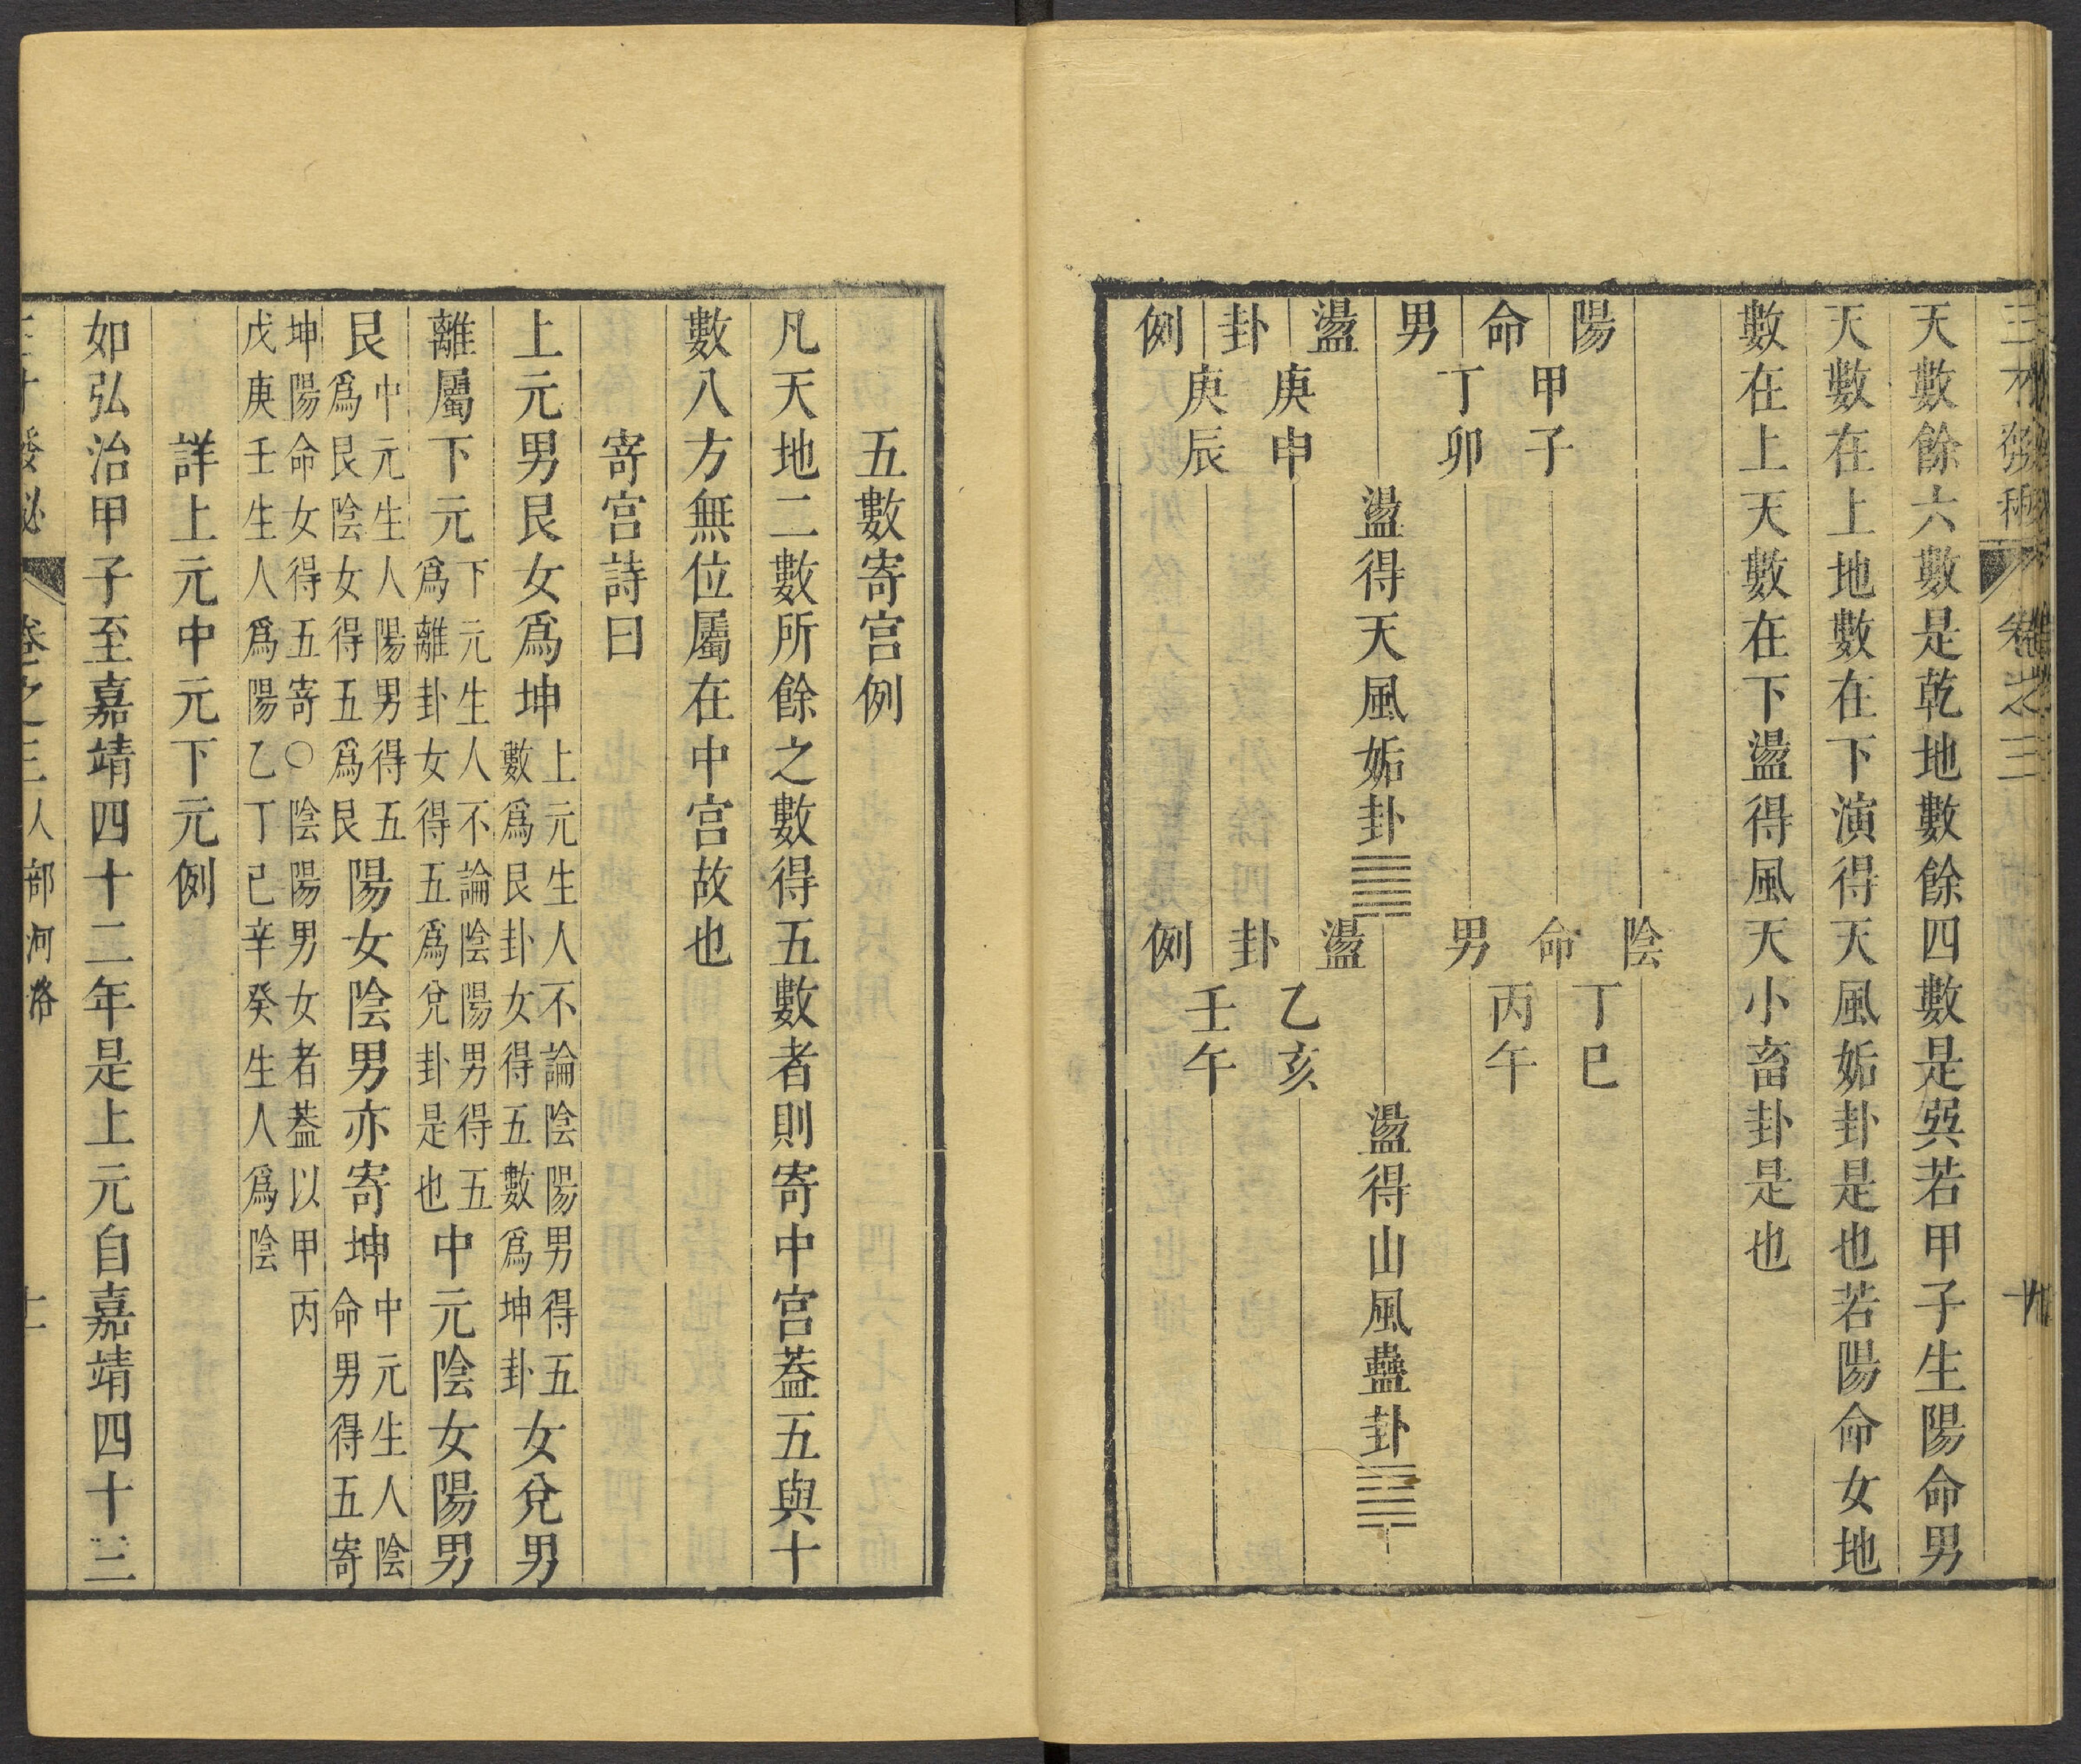 天數餘六數是乾地數餘四數是巽若甲子生陽命男
天數在上地數在下演得天風姤卦是也若陽命女地
數在上天數在下盪得風天小畜卦是也
陽命男盪卦例
甲子
丁卯
盪得天風姤卦䷫
庚申
庚辰
陰命男盪卦例
丁巳
丙午
盪得山風蠱卦䷑
乙亥
壬午
五數寄宮例
凡天地二數所餘之數得五數者則寄中宮葢五與十
數八方無位屬在中宮故也
寄宮詩曰
上元男艮女爲坤上元生人不論陰陽男得五數爲艮卦女得五數爲坤卦女兌男
離屬下元下元生人不論陰陽男得五爲離卦女得五爲兌卦是也中元陰女陽男
艮中元生人陽男得五爲艮陰女得五爲艮陽女陰男亦寄坤中元生人陰命男得五寄
坤陽命女得五寄〇陰陽男女者葢以甲丙
戊庚壬生人爲陽乙丁己辛癸生人爲陰
詳上元中元下元例
如弘治甲子至嘉靖四十二年是上元自嘉靖四十三
卷之三人部河洛